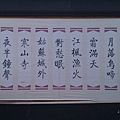 月落烏啼
霜滿天
江楓漁火
對愁眠
姑蘇城外
寒山寺
夜半鐘聲